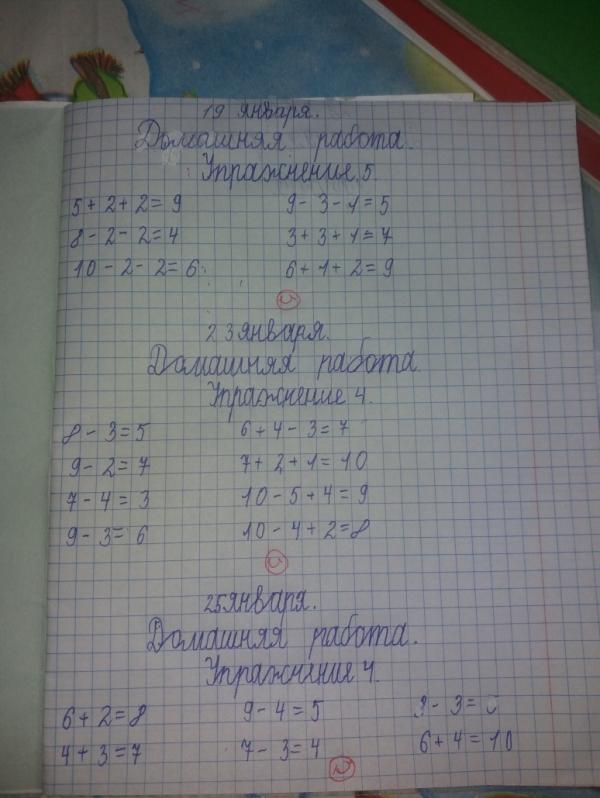 19 января.
Домашняя работа.
Упражнение 5.
5 + 2 + 2 = 9 9 - 3 - 1 = 5
8 - 2 - 2 = 4 3 + 3 + 1 = 7
10 - 2 - 2 = 6 6 + 1 + 2 = 9
23 января.
Домашняя работа.
Упражнение 4.
8 - 3 = 5 6 + 4 - 3 = 7
9 - 2 = 7 7 + 2 + 1 = 10
7 - 4 = 3 10 - 5 + 4 = 9
9 - 3 = 6 10 - 4 + 2 = 8
25 января.
Домашняя работа.
Упражнение 4.
6 + 2 = 8 9 - 4 = 5 - 3 =
4 + 3 = 7 7 - 3 = 4 6 + 4 = 10